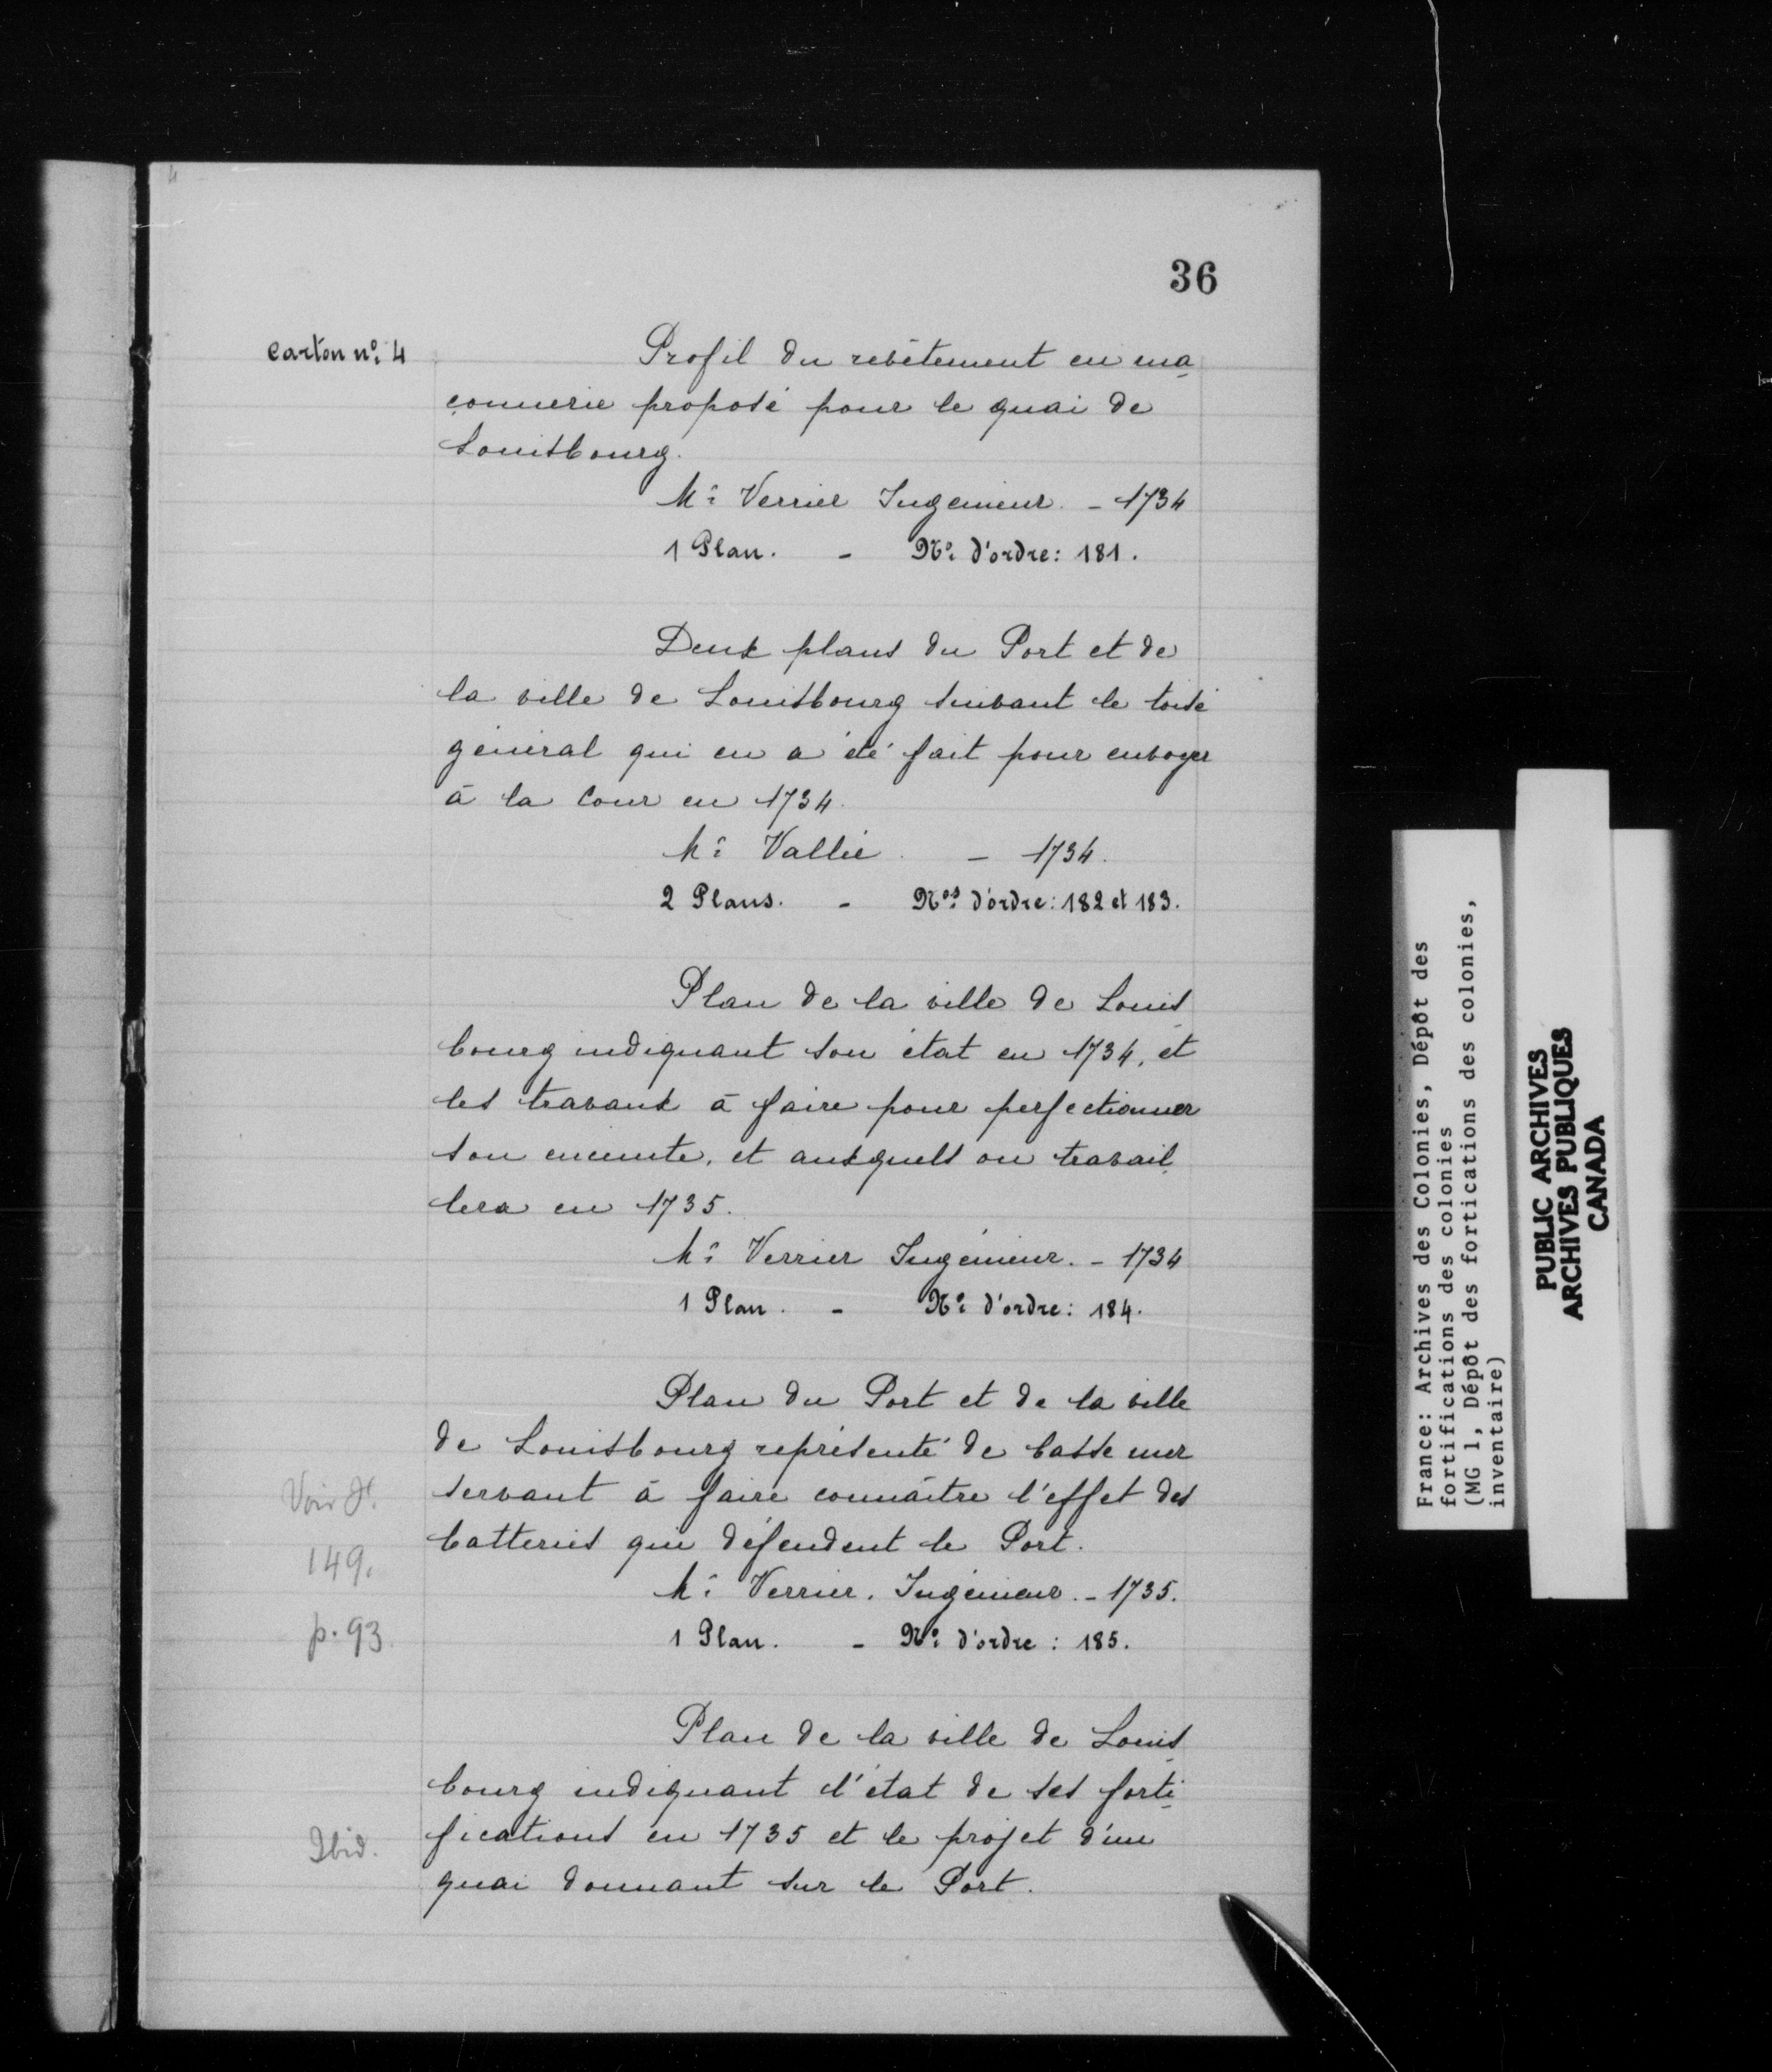 36
Carton nº: 4
Profil du revêtement en ma-
çonnerie proposé pour le quai de
Louisbourg.
Mr Verrier Ingénieur. - 1734
1 Plan. - Nº: d'ordre: 181.
Deux plans du Port et de
la ville de Louisbourg suivant le toisé
général qui en a été fait pour envoyer
à la Cour en 1734.
Mr Vallée. - 1734.
2 Plans. - Nos: d'ordre: 182 et 183.
Plan de la ville de Louis-
bourg indiquant son état en 1734, et
les travaux à faire pour perfectionner
son enceinte, et auxquels on travail-
lera en 1735.
Mr Verrier Ingénieur. - 1734
1 Plan. - Nº: d'ordre: 184.
Plan du Port et de la ville
de Louisbourg représenté de basse mer
servant à faire connaître l'effet des
batteries qui défendent le Port.
Mr Verrier. Ingénieur. - 1735.
1 Plan. - Nº: d'ordre: 185.
Voir
149.
p. 93.
Plan de la ville de Louis-
bourg indiquant l'état de ses forti-
fications en 1735 et le projet d'un
quai donnant sur le Port.
Ibid.
France: Archives des Colonies, Dépôt des
fortifications des colonies
(MG 1, Dépôt des fortications des colonies,
inventaire)
PUBLIC ARCHIVES
ARCHIVES PUBLIQUES
CANADA